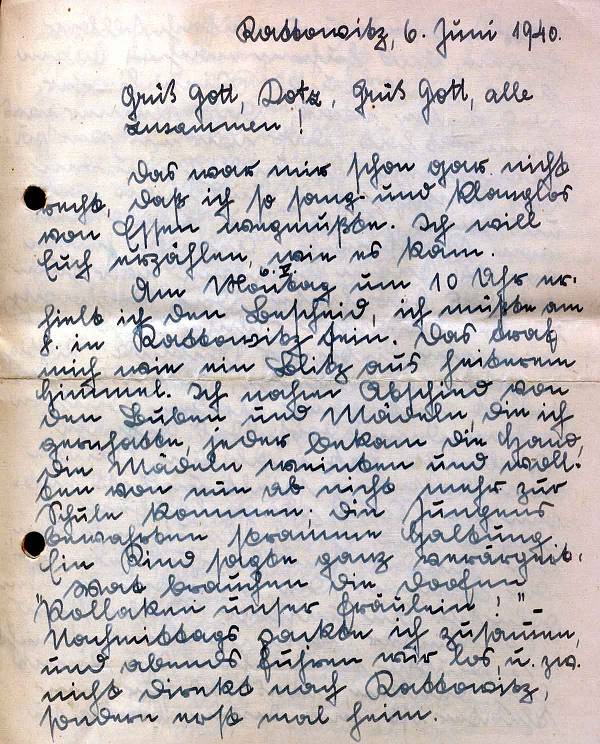 Kattowitz, 6. Juni 1940.
Grüß Gott, Dotz, Grüß Gott, alle
zusammen!
Das war mir schon gar nicht
recht, daß ich so sang- und klanglos
von Essen wegmußte. Ich will
Euch erzählen, wie es kam.
Am Montag 6. V. um 10 Uhr er-
hielt ich den Bescheid, ich müßte am
8. in Kattowitz sein. Das traf
mich wie ein Blitz aus heiterem
Himmel. Ich nahm Abschied von
den Buben und Mädeln, die ich
gernhatte, jeder bekam die Hand,
die Mädeln weinten und woll-
ten von nun ab nicht mehr zur
Schule kommen; die Jungens
bewahrten stramme Haltung.
Ein Kind sagte ganz verärgert:
„Wat brauchen die doofen
Pollaken unser Fräulein!" –
Nachmittags packte ich zusammen,
und abends fuhren wir los, u. zw.
nicht direkt nach Kattowitz,
sondern erst mal heim.